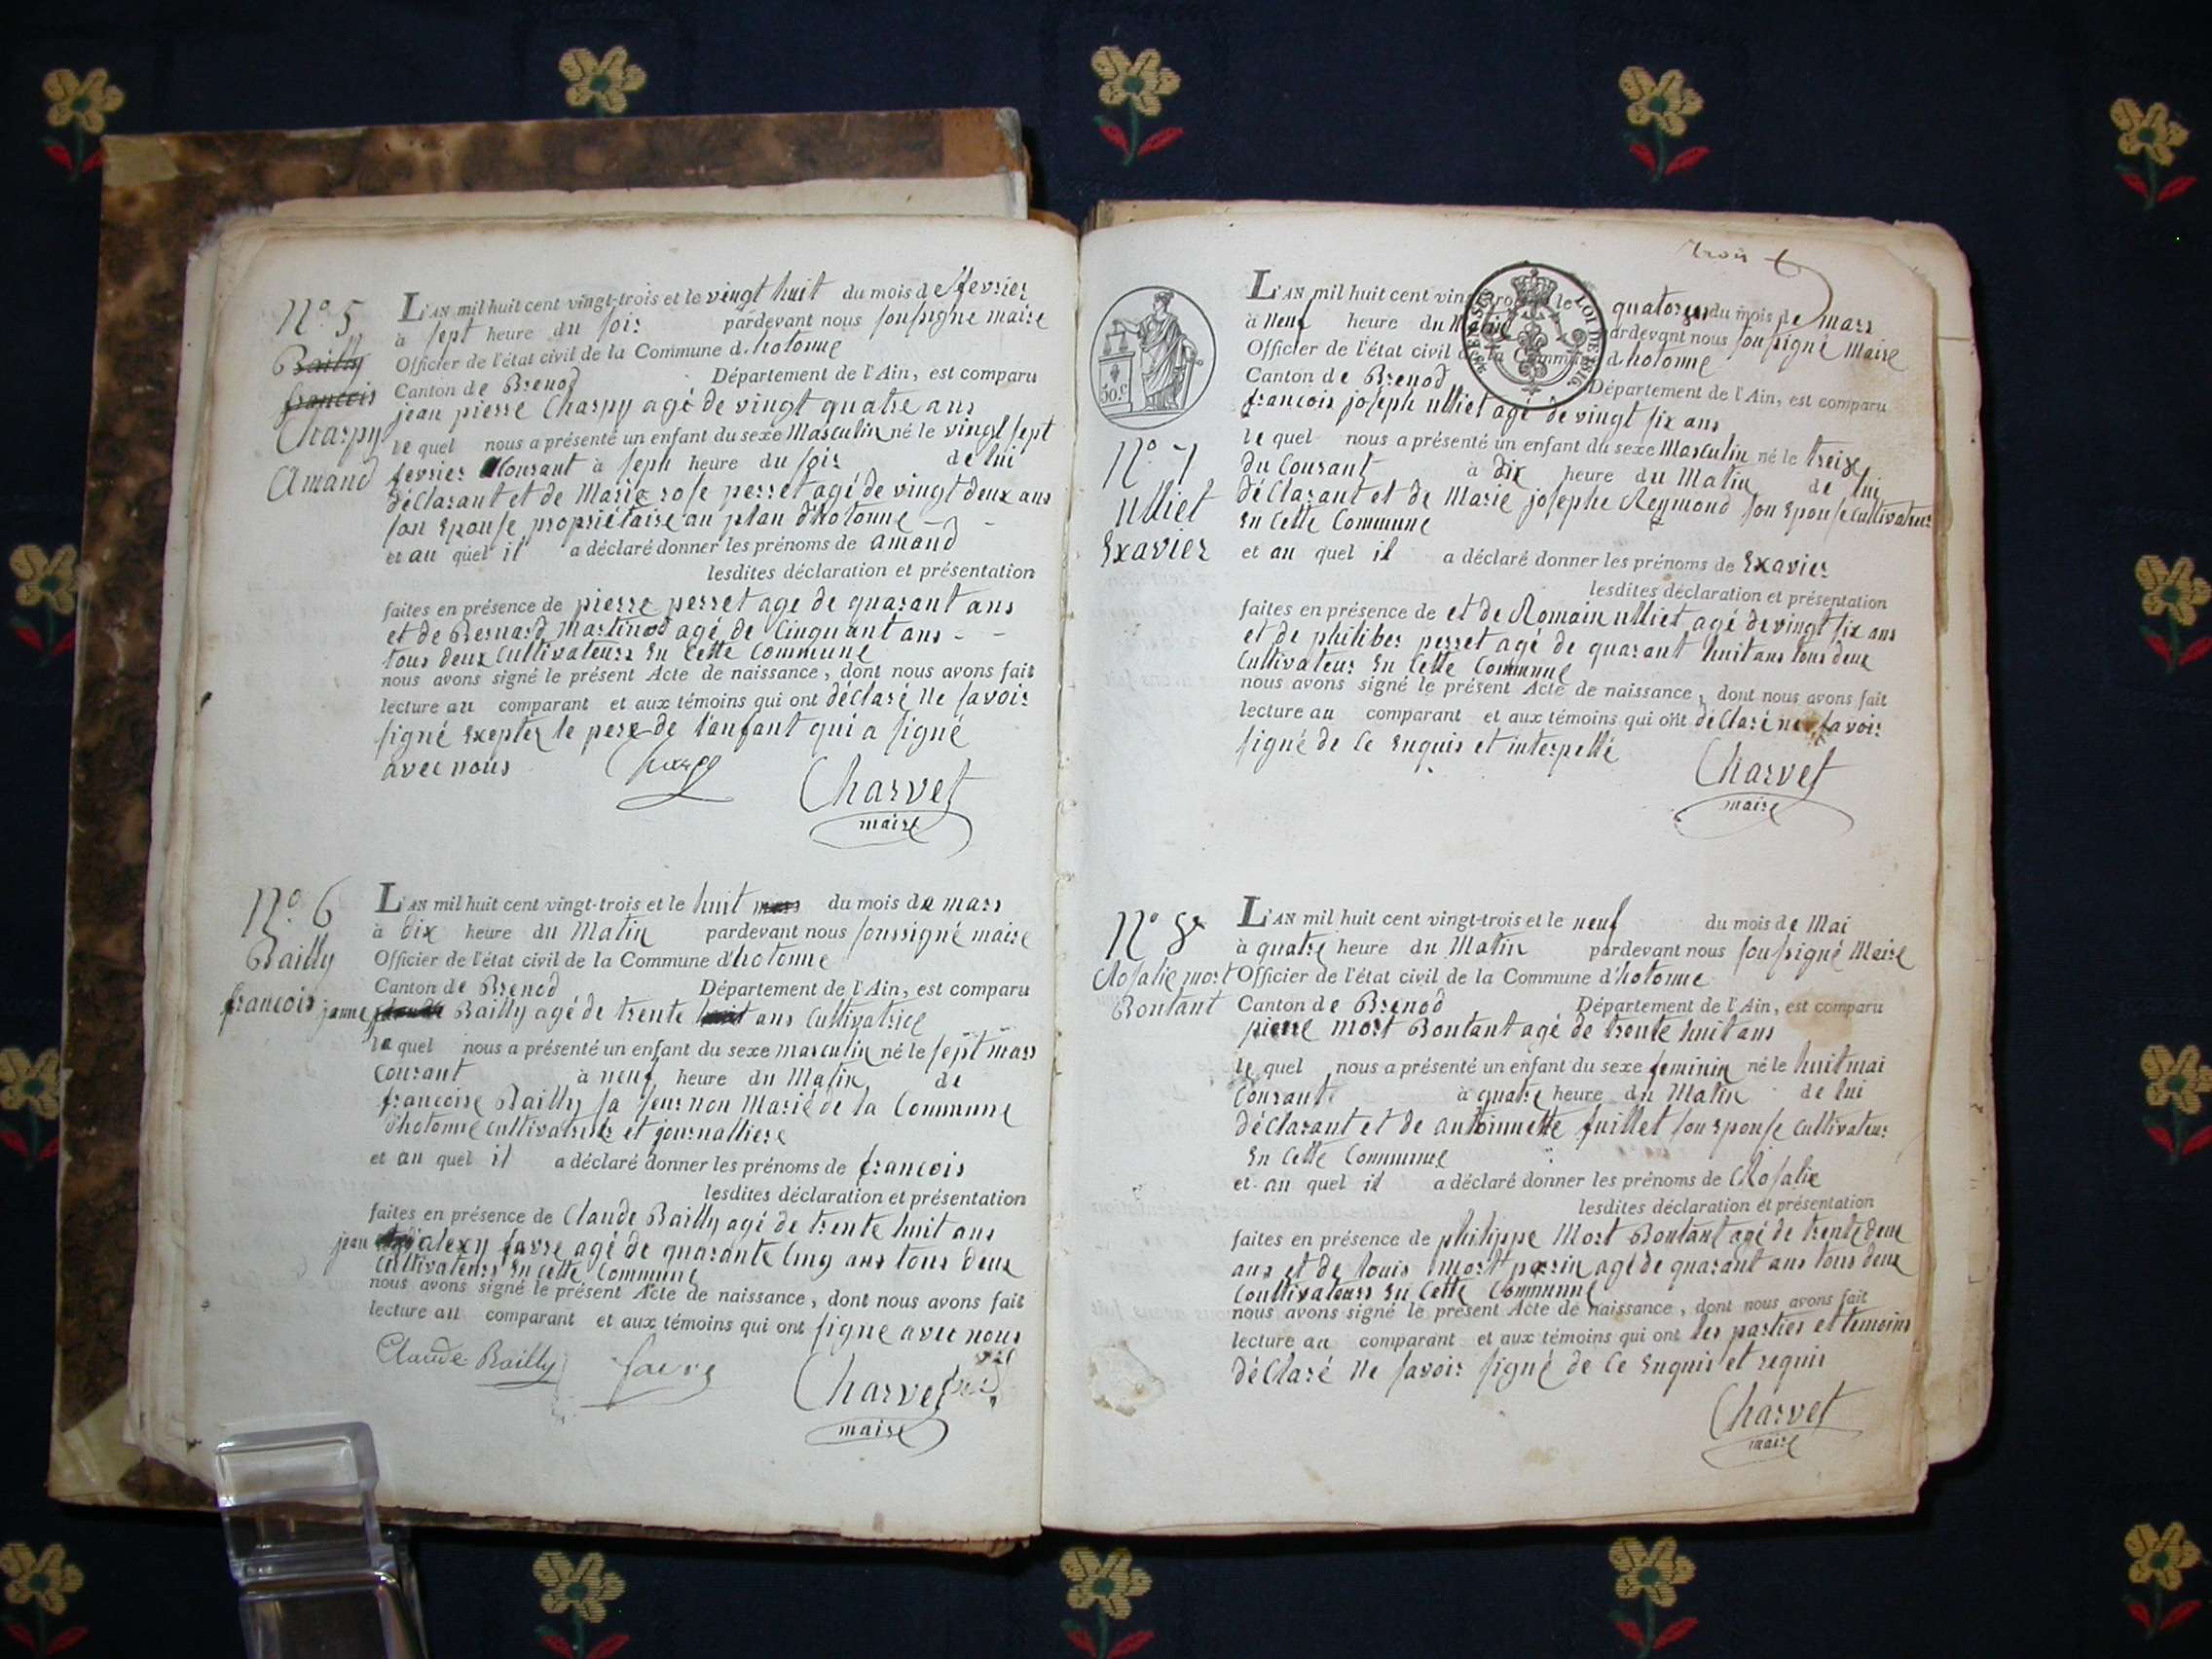 N.o 5
Bailly
francois
Charpy
Amand
L'AN mil huit cent vingt-trois et le vingt huit du mois de fevrier
à sept heure du soir pardevant nous soussigné maire
Officier de l'état civil de la Commune d. hotonne
Canton de Brenod Département de l'Ain, est comparu
jean pierre Charpy agé de vingt quatre ans
le quel nous a présenté un enfant du sexe Masculin né le vingt sept
fevrier Courant à seph heure du soir de lui
déclarant et de Marie rose perret agé de vingt deux ans
son Epouse propriétaire au plan d'hotonne
et au quel il a déclaré donner les prénoms de amand
lesdites déclaration et présentation
faites en présence de pierre perret age de quarant ans
et de Bernard Martinod agé de Cinquant ans
tous deux Cultivateurs En Cette Commune
nous avons signé le présent Acte de naissance, dont nous avons fait
lecture au comparant et aux témoins qui ont déclaré ne savoir
signé Exepter le pere de l'anfant qui a signé
avec nous
Charvet
maire
N.o 6
Bailly
francois
L'AN mil huit cent vingt-trois et le huit mars du mois de mars
à dix heure du Matin pardevant nous soussigné maire
Officier de l'état civil de la Commune d'hotonne
Canton de Brenod Département de l'Ain, est comparu
janne Bailly agé de trente huit ans Cultivatrice
la quel nous a présenté un enfant du sexe masculin né le sept mars
Courant à neuf heure du Matin de
francoise Bailly sa seur non Marié de la Commune
d'hotonne et journalliere
et au quel il a déclaré donner les prénoms de francois
lesdites déclaration et présentation
faites en présence de Claude Bailly agé de trente huit ans
jean alexy favre agé de quarante Cinq ans tous deux
Cultivateurs En Cette Commune
nous avons signé le présent Acte de naissance, dont nous avons fait
lecture au comparant et aux témoins qui ont signe avec nous
Claude Bailly favre
Charvet
maire
trois
50.c
LOI DE 1816.
N.o 7
ulliet
Exavier
L'AN mil huit cent vingt-trois et le quatorze du mois de mars
à neuf heure du Matin pardevant nous soussigné Maire
Officier de l'état civil de la Commune d. hotonne
Canton de Brenod Département de l'Ain, est comparu
francois joseph ulliet agé de vingt six ans
le quel nous a présenté un enfant du sexe Masculin né le treize
du Courant à dix heure du Matin de lui
déclarant et de Marie josephe Reymond son Epouse Cultivateur
En Cette Commune
et au quel il a déclaré donner les prénoms de Exavier
lesdites déclaration et présentation
faites en présence de et de Romain ulliet agé de vingt six ans
et de philiber perret agé de quarant huit ans tous deux
Cultivateur En Cette Commune
nous avons signé le présent Acte de naissance, dont nous avons fait
lecture au comparant et aux témoins qui ont déclaré ne savoir
signé de Ce Enquis et interpellé
Charvet
maire
N.o 8
Rosalie mort
Bontant
L'AN mil huit cent vingt-trois et le neuf du mois de Mai
à quatre heure du Matin pardevant nous soussigné Maire
Officier de l'état civil de la Commune d'hotonne
Canton de Brenod Département de l'Ain, est comparu
pierre mort Bontant agé de trente huit ans
le quel nous a présenté un enfant du sexe feminin né le huit mai
Courant à quatre heure du Matin de lui
déclarant et de antoinnette fuillet son Epouse Cultivateur
En Cette Commune
et au quel il a déclaré donner les prénoms de Rosalie
lesdites déclaration et présentation
faites en présence de philippe Mort Bontant agé de trente deux
ans et de louis mort parrin agé de quarant ans tous deux
Coultivateurs En Cette Commune
nous avons signé le présent Acte de naissance, dont nous avons fait
lecture au comparant et aux témoins qui ont les parties et temoins
déclaré ne savoir signé de Ce Enquis et requis
Charvet
maire